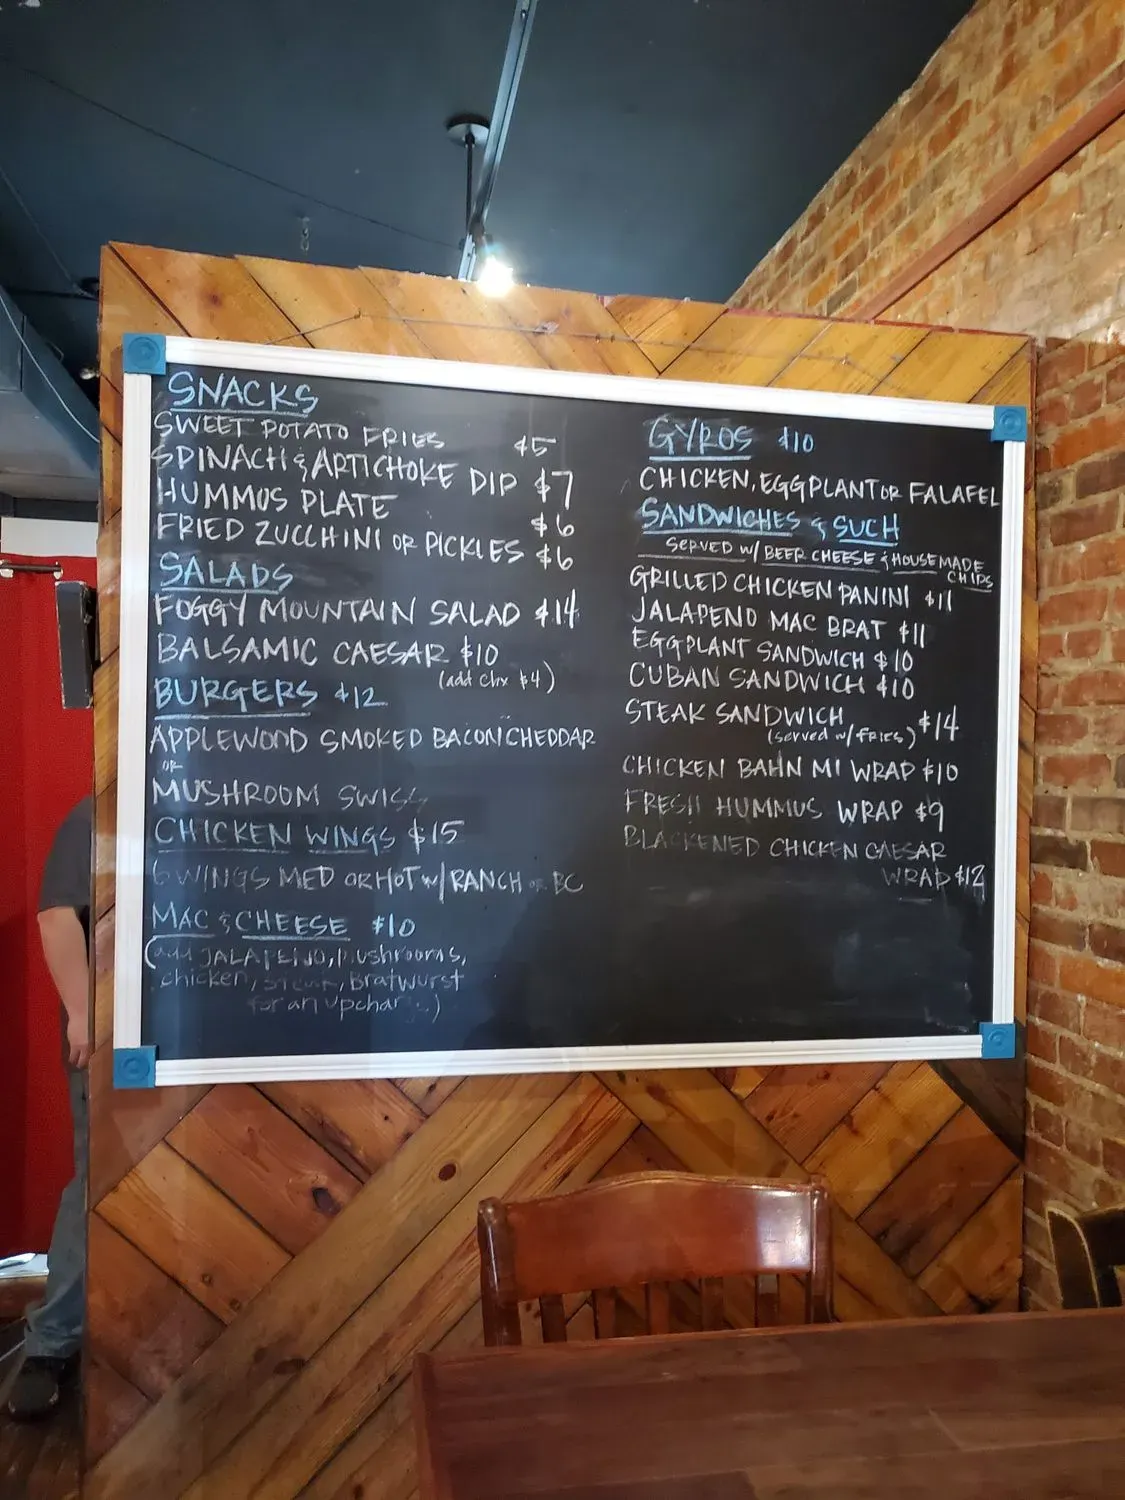 SNACKS
SWEET POTATO FRIES $5
SPINACH & ARTICHOKE DIP $7
HUMMUS PLATE $6
FRIED ZUCCHINI OR PICKLES $6
SALADS
FOGGY MOUNTAIN SALAD $14
BALSAMIC CAESAR $10
(add chx $4)
BURGERS $12
APPLEWOOD SMOKED BACON CHEDDAR
OR
MUSHROOM SWISS
CHICKEN WINGS $15
6 WINGS MED OR HOT W/ RANCH OR BC
MAC & CHEESE $10
(add JALAPEÑO, mushrooms,
chicken, steak, Bratwurst
for an upcharge)
GYROS $10
CHICKEN, EGGPLANT OR FALAFEL
SANDWICHES & SUCH
SERVED W/ BEER CHEESE & HOUSEMADE
CHIPS
GRILLED CHICKEN PANINI $11
JALAPENO MAC BRAT $11
EGGPLANT SANDWICH $10
CUBAN SANDWICH $10
STEAK SANDWICH $14
(served w/ fries)
CHICKEN BAHN MI WRAP $10
FRESH HUMMUS WRAP $9
BLACKENED CHICKEN CAESAR
WRAP $12